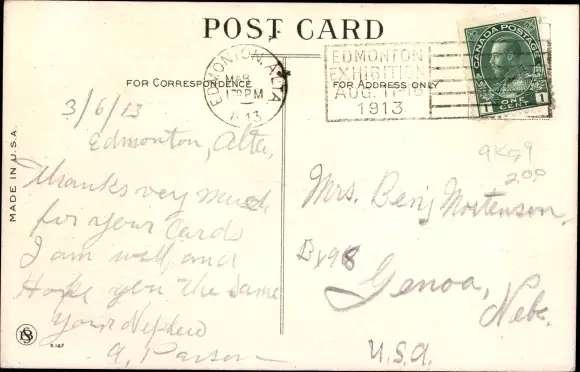 POST CARD
FOR CORRESPONDENCE
FOR ADDRESS ONLY
EDMONTON, ALTA
MAR
130 PM
13
EDMONTON
EXHIBITION
AUG. 11-16
1913
CANADA POSTAGE
1 ONE CENT 1
MADE IN U.S.A.
3/6/13
Edmonton, Alta,
Thanks very much
for your Cards
I am well and
Hope you the same
your Nephew
A. Parson
9KG9
200
Mrs. Benj Mortenson,
Bx98
Genoa,
Nebr.
U.S.A.
S-167